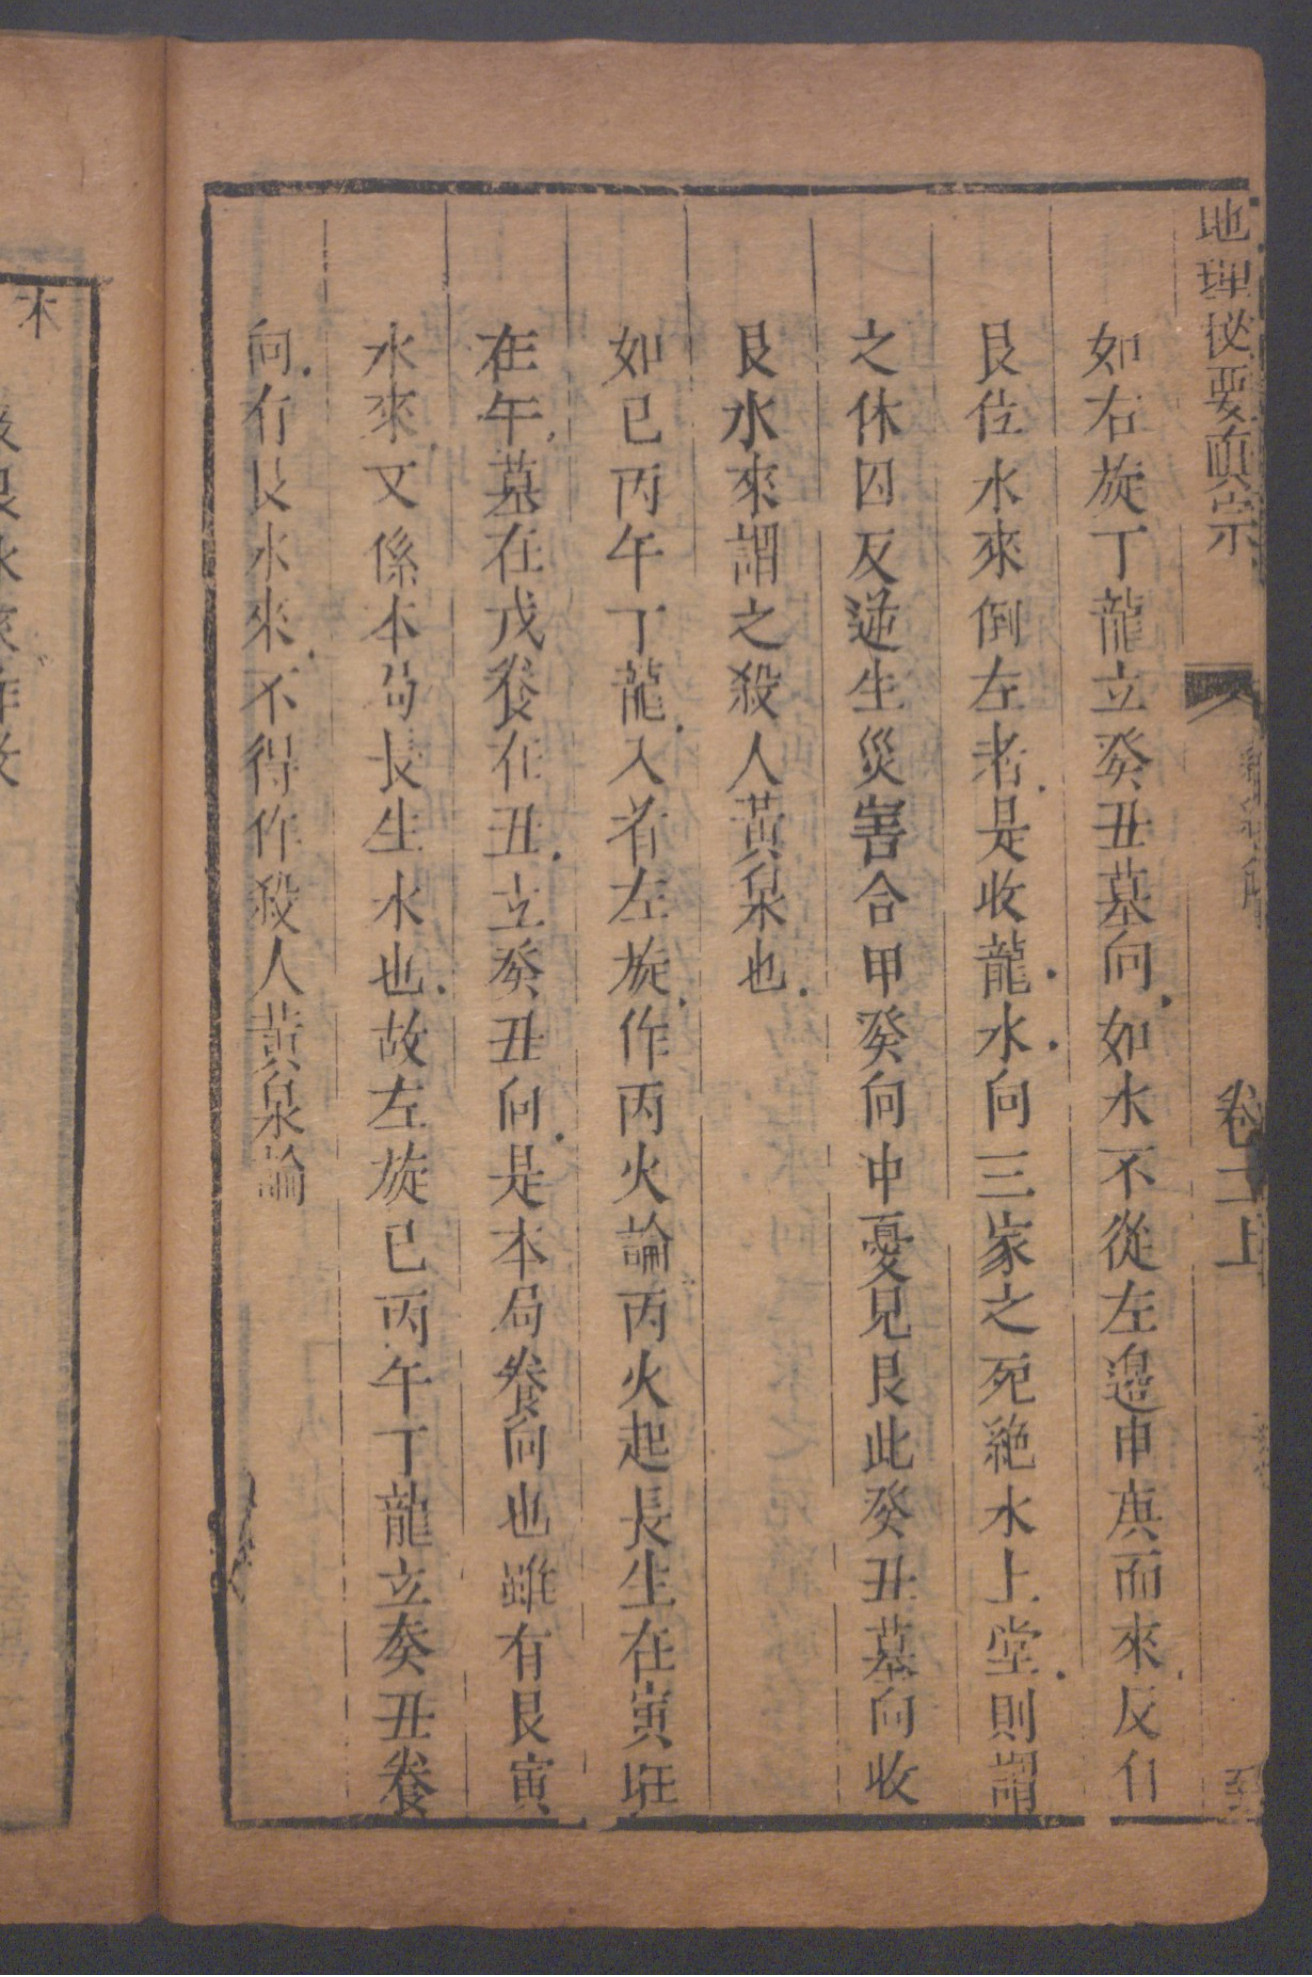 地理捷要眞宗
卷二上
如右旋丁龍立癸丑墓向如水不從左邉申庚而來反自
艮位水來倒左者是收龍水向三家之死絶水上堂則謂
之休囚反逆生災害合甲癸向中憂見艮此癸丑墓向收
艮水來謂之殺人黃泉也
如巳丙午丁龍入者左旋作丙火論丙火起長生在寅旺
在午墓在戌養在丑立癸丑向是本局養向也雖有艮寅
水來又係本局長生水也故左旋巳丙午丁龍立癸丑養
向有艮水來不得作殺人黃泉論